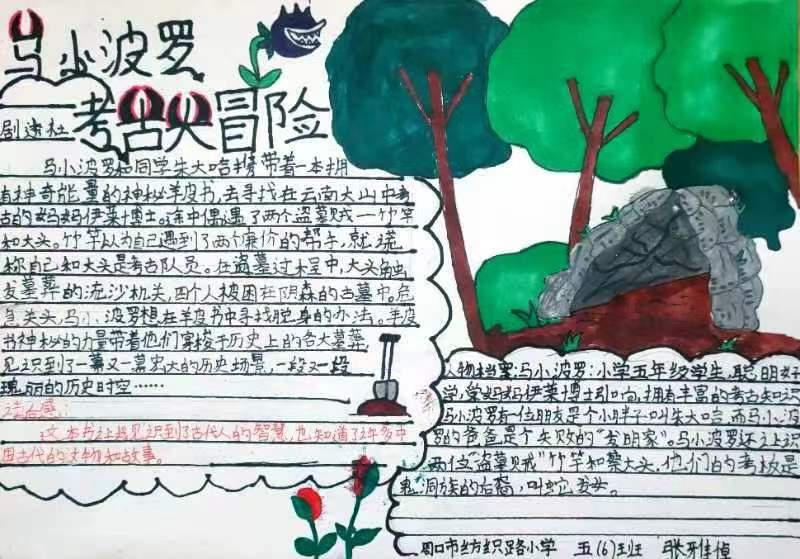 马小波罗
考古大冒险
剧透社
马小波罗和同学朱大哈携带着一本拥
有神奇能量的神秘羊皮书，去寻找在云南大山中考
古的妈妈伊莱博士。途中偶遇了两个盗墓贼一竹竿
和大头。竹竿认为自己遇到了两个廉价的帮手，就谎
称自己和大头是考古队员。在盗墓过程中，大头触
发墓葬的流沙机关，四个人被困在阴森的古墓中。危
急关头，马小波罗想在羊皮书中寻找脱身的办法。羊皮
书神秘的力量带着他们穿梭于历史上的各大墓葬
见识到了一幕又一幕宏大的历史场景，一段又一段
瑰丽的历史时空……
读后感：
这本书让我见识到了古代人的智慧，也知道了许多中
国古代的文物和故事。
人物档案：马小波罗：小学五年级学生，聪明好
学，受妈妈伊莱博士引响，拥有丰富的考古知识
马小波罗有一位朋友是个小胖子叫朱大哈，而马小波
罗的爸爸是个失败的“发明家”。马小波罗还认识
两位“盗墓贼”竹竿和蔡大头，他们的老板是
洞族的后裔，叫蛇发头。
周口市纺织路小学 五（6）班 张雅倩